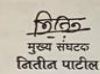 नितिन
मुख्य संघटक
नितीन पाटील